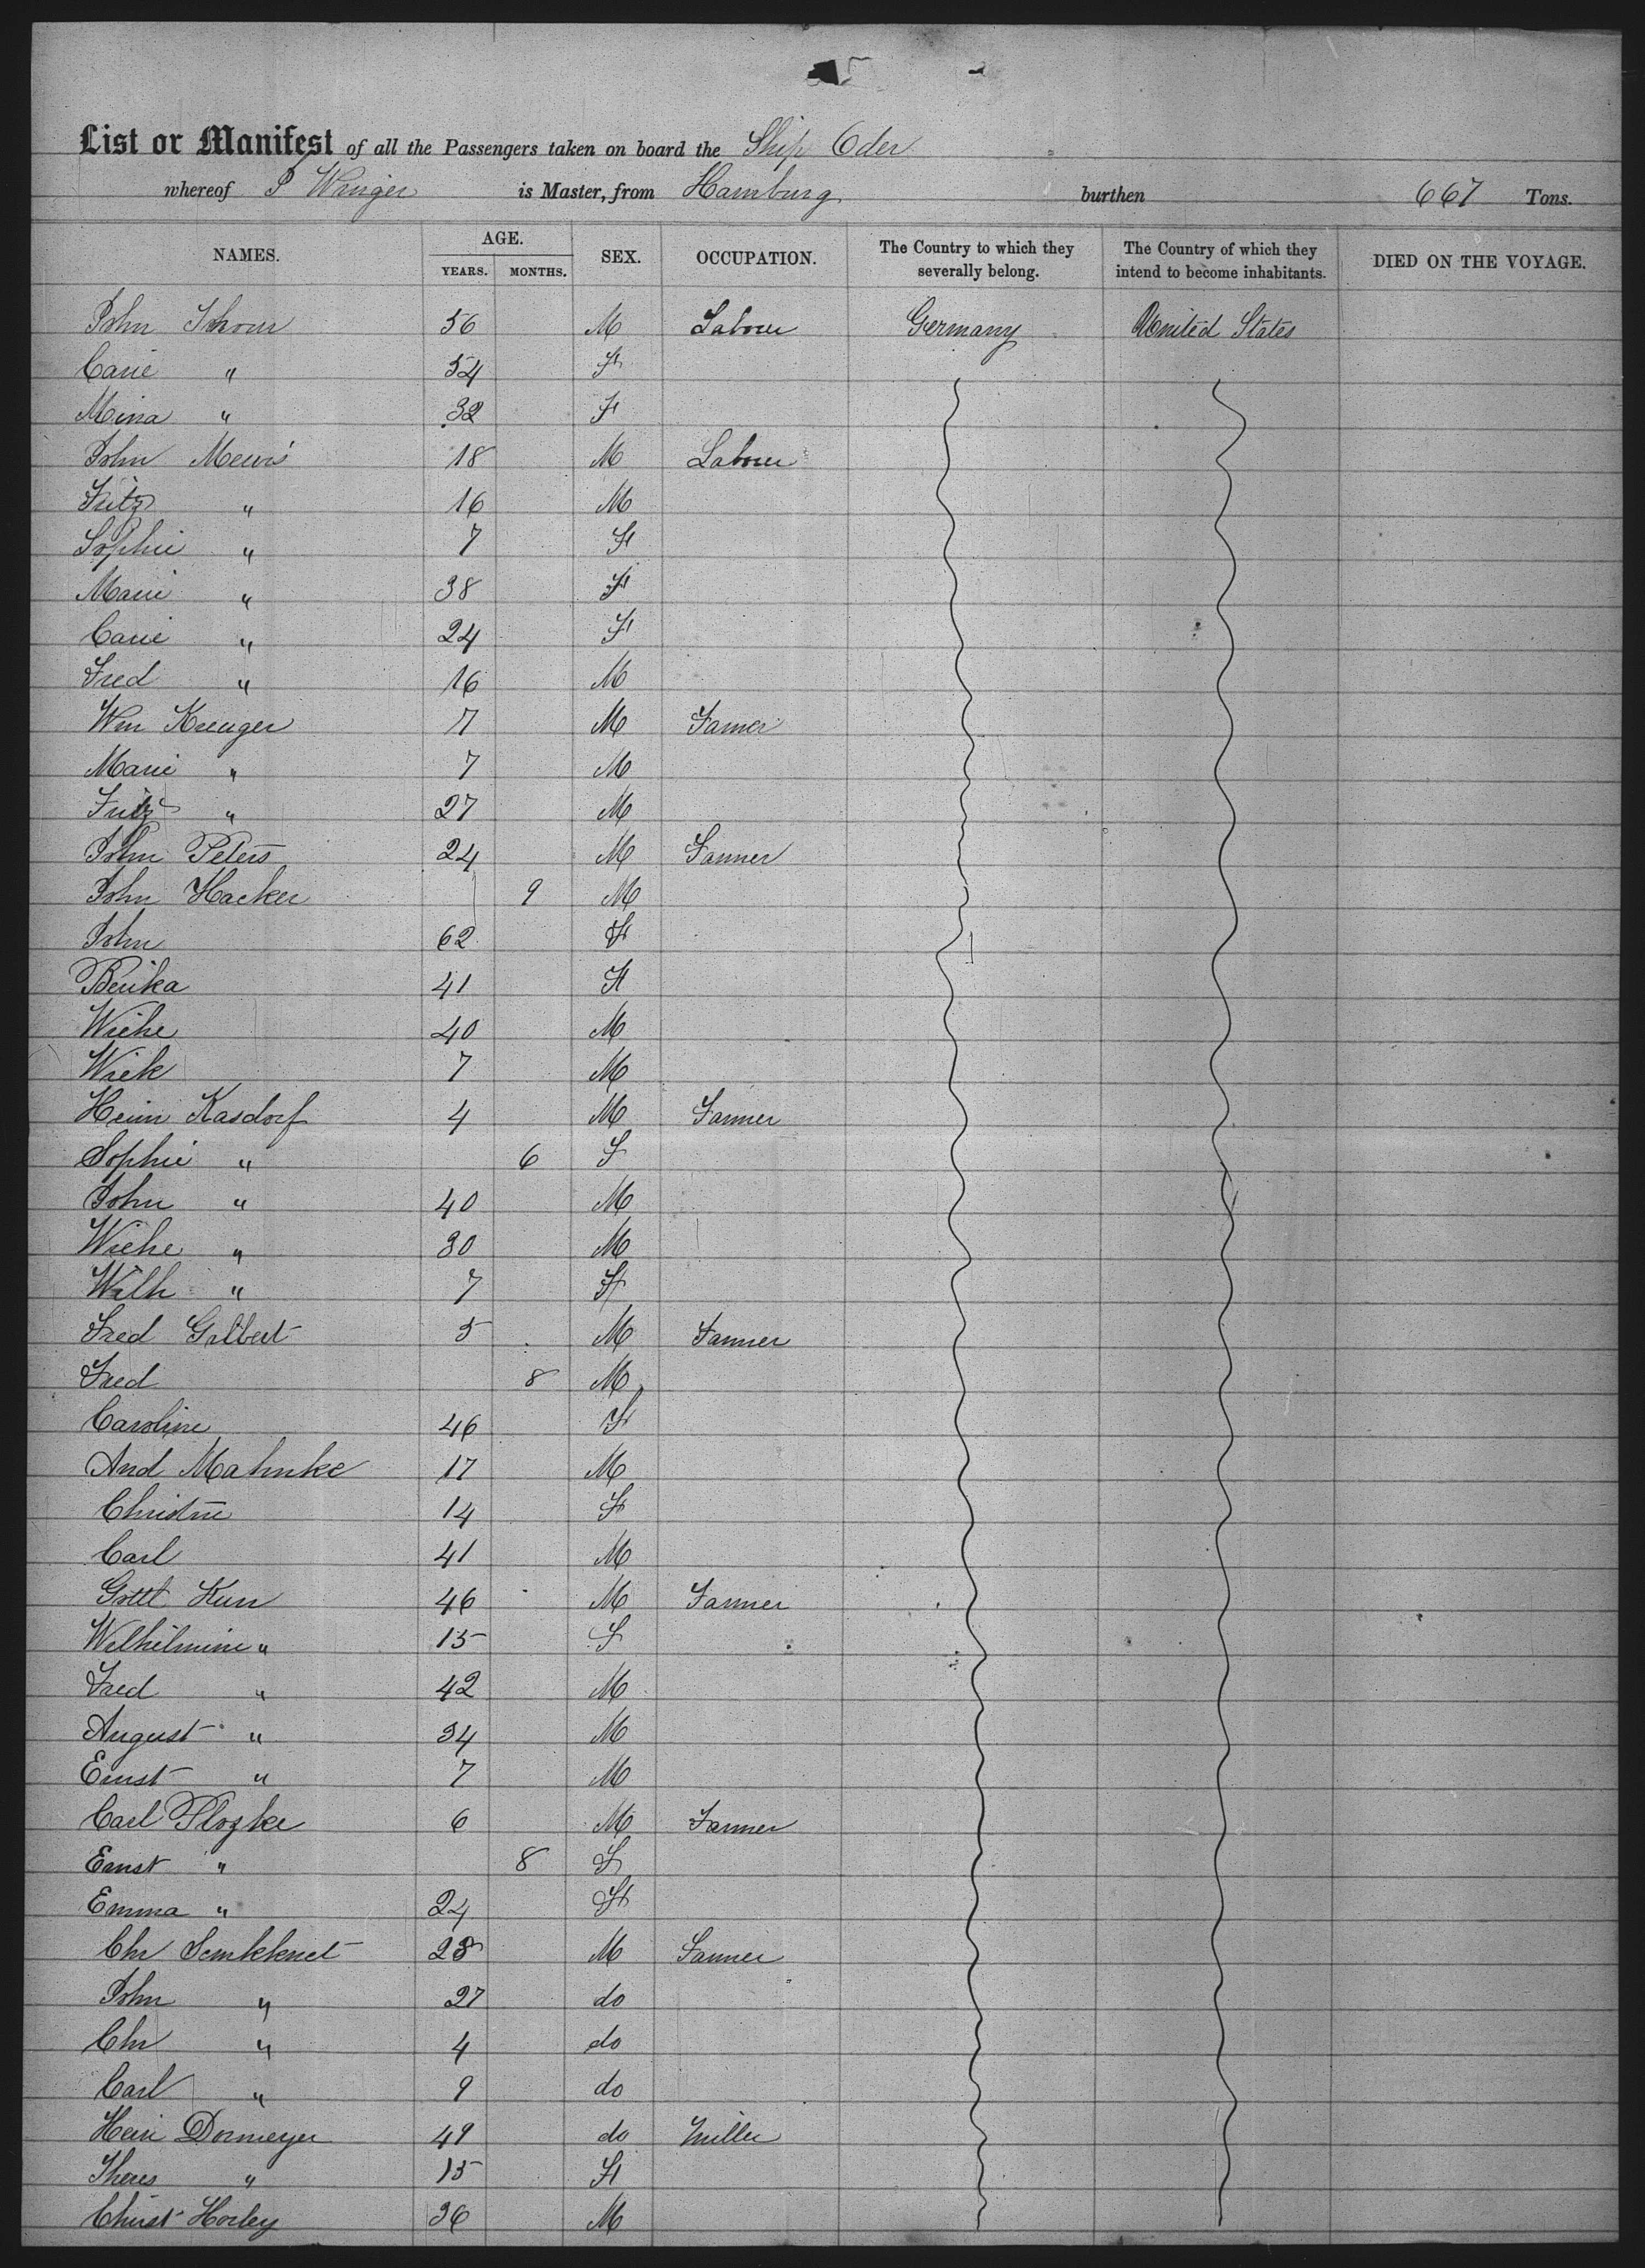 List or Manifest of all the Passengers taken on board the Ship Oder
whereof P Wringer is Master, from Hamburg burthen 667 Tons.
NAMES. AGE. YEARS. MONTHS. SEX. OCCUPATION. The Country to which they severally belong. The Country of which they intend to become inhabitants. DIED ON THE VOYAGE.
John 56 M Labour Germany United States
Carie " 54 F
Mina " 32 F
John Mewis 18 M Labour
Fritz " 16 M
Sophie " 7 F
Marie " 38 F
Carie " 24 F
Fred " 16 M
Wm Kreuger 7 M Famer
Marie " 7 M
Fritz " 27 M
John Peters 24 M Farmer
John Hacker 9 M
John 62 F
Berika 41 F
Wiehe 40 M
Wiek 7 M
Heim Kasdorf 4 M Farmer
Sophie " 6 F
John " 40 M
Wiehe " 30 M
Wilh " 7 F
Fred Galbert 5 M Farmer
Fred 8 M
Caroline 46 F
And Mahnke 17 M
Christine 14 F
Carl 41 M
Gottl Kun 46 M Farmer
Wilhelmine " 15 F
Fred " 42 M
August " 34 M
Ernst " 7 M
Carl Plozke 6 M Farmer
Ernst " 8 F
Emma " 24 F
Chr 28 M Farmer
John " 27 do
Chr " 4 do
Carl " 9 do
Hein Dormeyer 49 do Miller
Theres " 15 F
Christ Horley 36 M